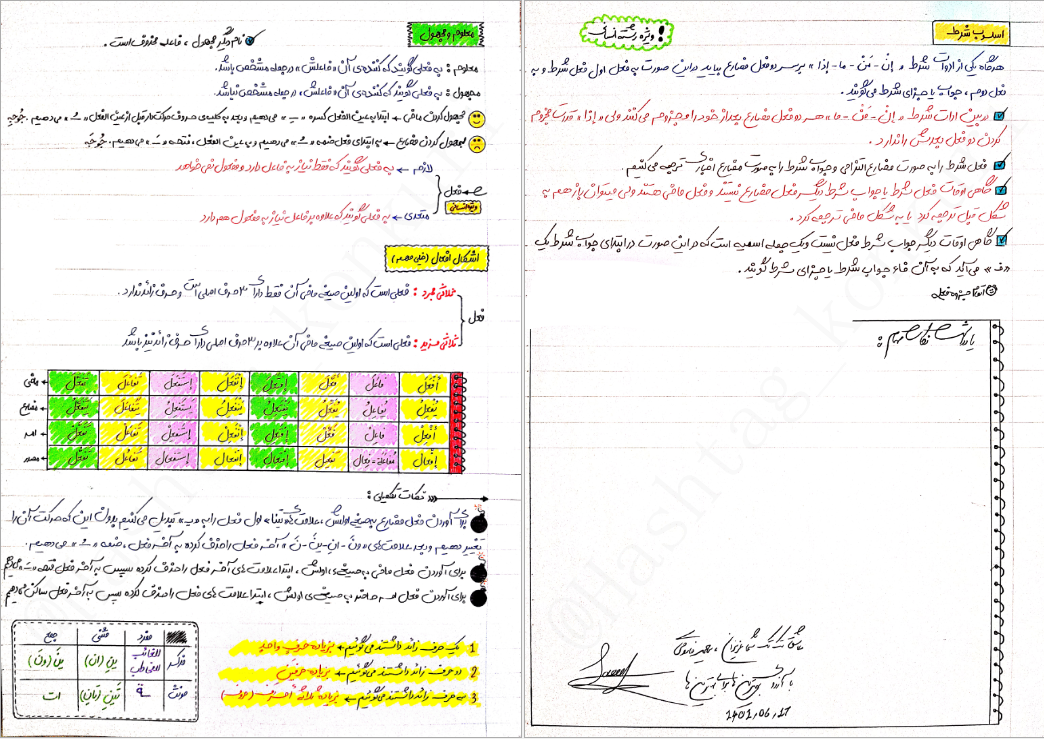 اسلوب شرط
ویژه رشته انسانی !
هرگاه یکی از ادوات شرط « إنْ - مَنْ - ما - إذا » بر سر دو فعل مضارع بیاید در این صورت به فعل اول فعل شرط و به
فعل دوم ، جواب یا جزای شرط می‌گویند .
در بین ادات شرط « إنْ - مَنْ - ما » هر دو فعل مضارع بعد از خود را مجزوم می‌کنند ولی « إذا » قدرت مجزوم
کردن دو فعل بعدش را ندارد .
فعل شرط را به صورت مضارع التزامی و جواب شرط را به صورت مضارع اخباری ترجمه می‌کنیم .
گاهی اوقات فعل شرط یا جواب شرط دیگر فعل مضارع نیستند و فعل ماضی هستند ولی میتوان باز هم به
شکل قبل ترجمه کرد یا به شکل ماضی ترجمه کرد .
گاهی اوقات دیگر جواب شرط فعل نیست و یک جمله اسمیه است که در این صورت در ابتدای جواب شرط یک
« ف » می‌آید که به آن فاء جواب شرط یا جزای شرط گویند .
یادداشت نکات مهم :
با آرزوی بهترین ها برای بهترین ها
1401,06,17
معلوم و مجهول
نام دیگر مجهول ، فاعله محذوف است .
معلوم : به فعلی گویند که کننده‌ی آن « فاعلش » در جمله مشخص باشد .
مجهول : به فعلی گویند که کننده‌ی آن « فاعلش » در جمله مشخص نباشد .
مجهول کردن ماضی ← ابتدا به عین الفعل کسره « ـِ » می‌دهیم و بعد به کلیه‌ی حروف حرکت دار قبل از عین الفعل « ـُ » می‌دهیم .
مجهول کردن مضارع ← به ابتدای فعل ضمه « ـُ » می‌دهیم و به عین الفعل ، فتحه « ـَ » می‌دهیم .
لازم ← به فعلی گویند که فقط نیاز به فاعل دارد و مفعول نمی‌خواهد
فعل
ویژه انسانی
متعدی ← به فعلی گویند که علاوه بر فاعل نیاز به مفعول هم دارد
اشکال افعال (خیلی مهم)
ثلاثی مجرد : فعلی است که اولین صیغه ماضی آن فقط دارای ۳ حرف اصلی است و حرف زائد ندارد .
فعل
ثلاثی مزید : فعلی است که اولین صیغه ماضی آن علاوه بر ۳ حرف اصلی دارای حرف زائد نیز باشد
أفعَلَ فاعَلَ فَعَّلَ إنفَعَلَ إفتَعَلَ إستَفعَلَ تَفاعَلَ تَفَعَّلَ ← ماضی
یُفعِلُ یُفاعِلُ یُفَعِّلُ یَنفَعِلُ یَفتَعِلُ یَستَفعِلُ یَتَفاعَلُ یَتَفَعَّلُ ← مضارع
أفعِل فاعِل فَعِّل إنفَعِل إفتَعِل إستَفعِل تَفاعَل تَفَعَّل ← امر
إفعال مفاعلة - فعال تفعیل إنفعال إفتعال إستفعال تَفاعُل تَفَعُّل ← مصدر
نکات تکمیلی :
برای آوردن فعل مضارع به صیغه اولش ، علامت های ابتدا اول فعل را به « یـ » تبدیل می‌کنیم بدون این که حرکت آن را
تغییر دهیم و بعد علامت‌های « ونَ - انِ - ینَ - نَ » آخر فعل را حذف کرده به آخر فعل ، ضمه « ـُ » می‌دهیم .
برای آوردن فعل ماضی به صیغه‌ی اولش ، ابتدا علامت های آخر فعل را حذف کرده سپس به آخر فعل فتحه « ـَ » می‌دهیم
برای آوردن فعل امر حاضر به صیغه‌ی اولش ، ابتدا علامت های فعل را حذف کرده سپس به آخر فعل ساکن می‌دهیم
1 یک حرف زائد داشتند می‌گوئیم ← بزیادة حرف واحد
2 دو حرف زائد داشتند می‌گوئیم ← بزیادة حرفین
3 سه حرف زائد داشتند می‌گوئیم ← بزیادة ثلاثة أحرف (حروف)
مفرد مثنی جمع
مذکر للغائب للمخاطب ینِ (انِ) ینَ (ونَ)
مونث ـة تَینِ (تانِ) ات
@Hashtag_konkur